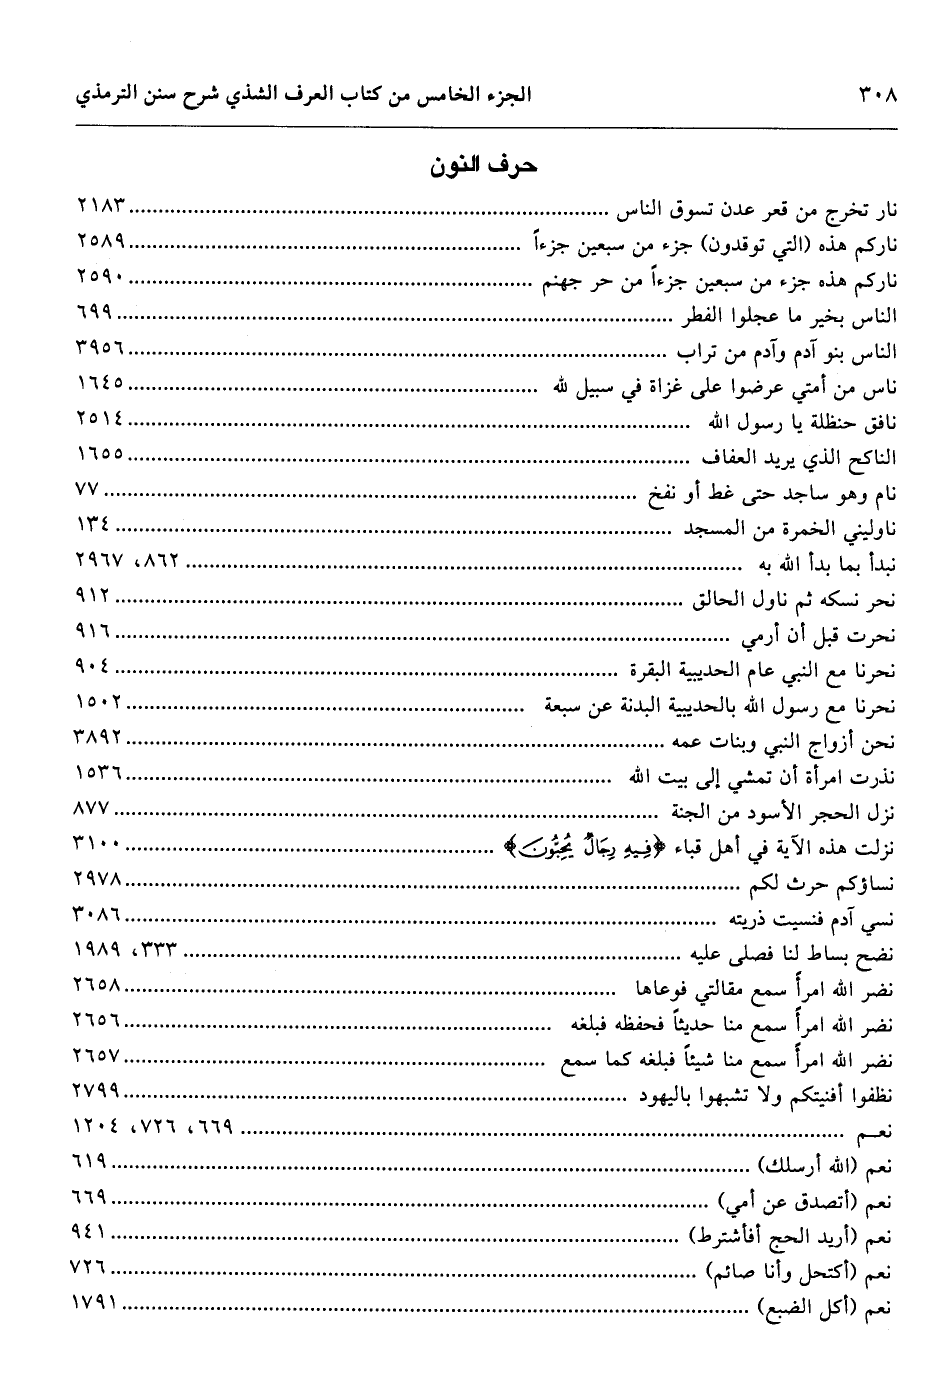 ٣٠٨ الجزء الخامس من كتاب العرف الشذي شرح سنن الترمذي
حرف النون
نار تخرج من قعر عدن تسوق الناس ........ ٢١٨٣
ناركم هذه (التي توقدون) جزء من سبعين جزءاً ........ ٢٥٨٩
ناركم هذه جزء من سبعين جزءاً من حر جهنم ........ ٢٥٩٠
الناس بخير ما عجلوا الفطر ........ ٦٩٩
الناس بنو آدم وآدم من تراب ........ ٣٩٥٦
ناس من أمتي عرضوا على غزاة في سبيل لله ........ ١٦٤٥
نافق حنظلة يا رسول الله ........ ٢٥١٤
الناكح الذي يريد العفاف ........ ١٦٥٥
نام وهو ساجد حتى غط أو نفخ ........ ٧٧
ناوليني الخمرة من المسجد ........ ١٣٤
نبدأ بما بدأ الله به ........ ٨٦٢، ٢٩٦٧
نحر نسكه ثم ناول الحالق ........ ٩١٢
نحرت قبل أن أرمي ........ ٩١٦
نحرنا مع النبي عام الحديبية البقرة ........ ٩٠٤
نحرنا مع رسول الله بالحديبية البدنة عن سبعة ........ ١٥٠٢
نحن أزواج النبي وبنات عمه ........ ٣٨٩٢
نذرت امرأة أن تمشي إلى بيت الله ........ ١٥٣٦
نزل الحجر الأسود من الجنة ........ ٨٧٧
نزلت هذه الآية في أهل قباء ﴿فِيهِ رِجَالٌ يُحِبُّونَ﴾ ........ ٣١٠٠
نساؤكم حرث لكم ........ ٢٩٧٨
نسي آدم فنسيت ذريته ........ ٣٠٨٦
نضح بساط لنا فصلى عليه ........ ٣٣٣، ١٩٨٩
نضر الله امرأً سمع مقالتي فوعاها ........ ٢٦٥٨
نضر الله امرأً سمع منا حديثاً فحفظه فبلغه ........ ٢٦٥٦
نضر الله امرأً سمع منا شيئاً فبلغه كما سمع ........ ٢٦٥٧
نظفوا أفنيتكم ولا تشبهوا باليهود ........ ٢٧٩٩
نعـم ........ ٦٦٩، ٧٢٦، ١٢٠٤
نعم (الله أرسلك) ........ ٦١٩
نعم (أتصدق عن أمي) ........ ٦٦٩
نعم (أريد الحج أفأشترط) ........ ٩٤١
نعم (أكتحل وأنا صائم) ........ ٧٢٦
نعم (أكل الضبع) ........ ١٧٩١